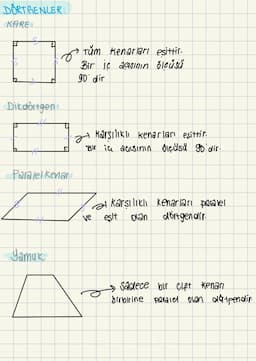 DÖRTGENLER:
KARE:
Tüm kenarları eşittir.
Bir iç açısının ölçüsü
90°dir
Dikdörtgen:
Karşılıklı kenarları eşittir.
Bir iç açısının ölçüsü 90°dir.
Paralelkenar
Karşılıklı kenarları paralel
ve eşit olan dörtgendir.
Yamuk:
Sadece bir çift kenarı
birbirine paralel olan dörtgendir